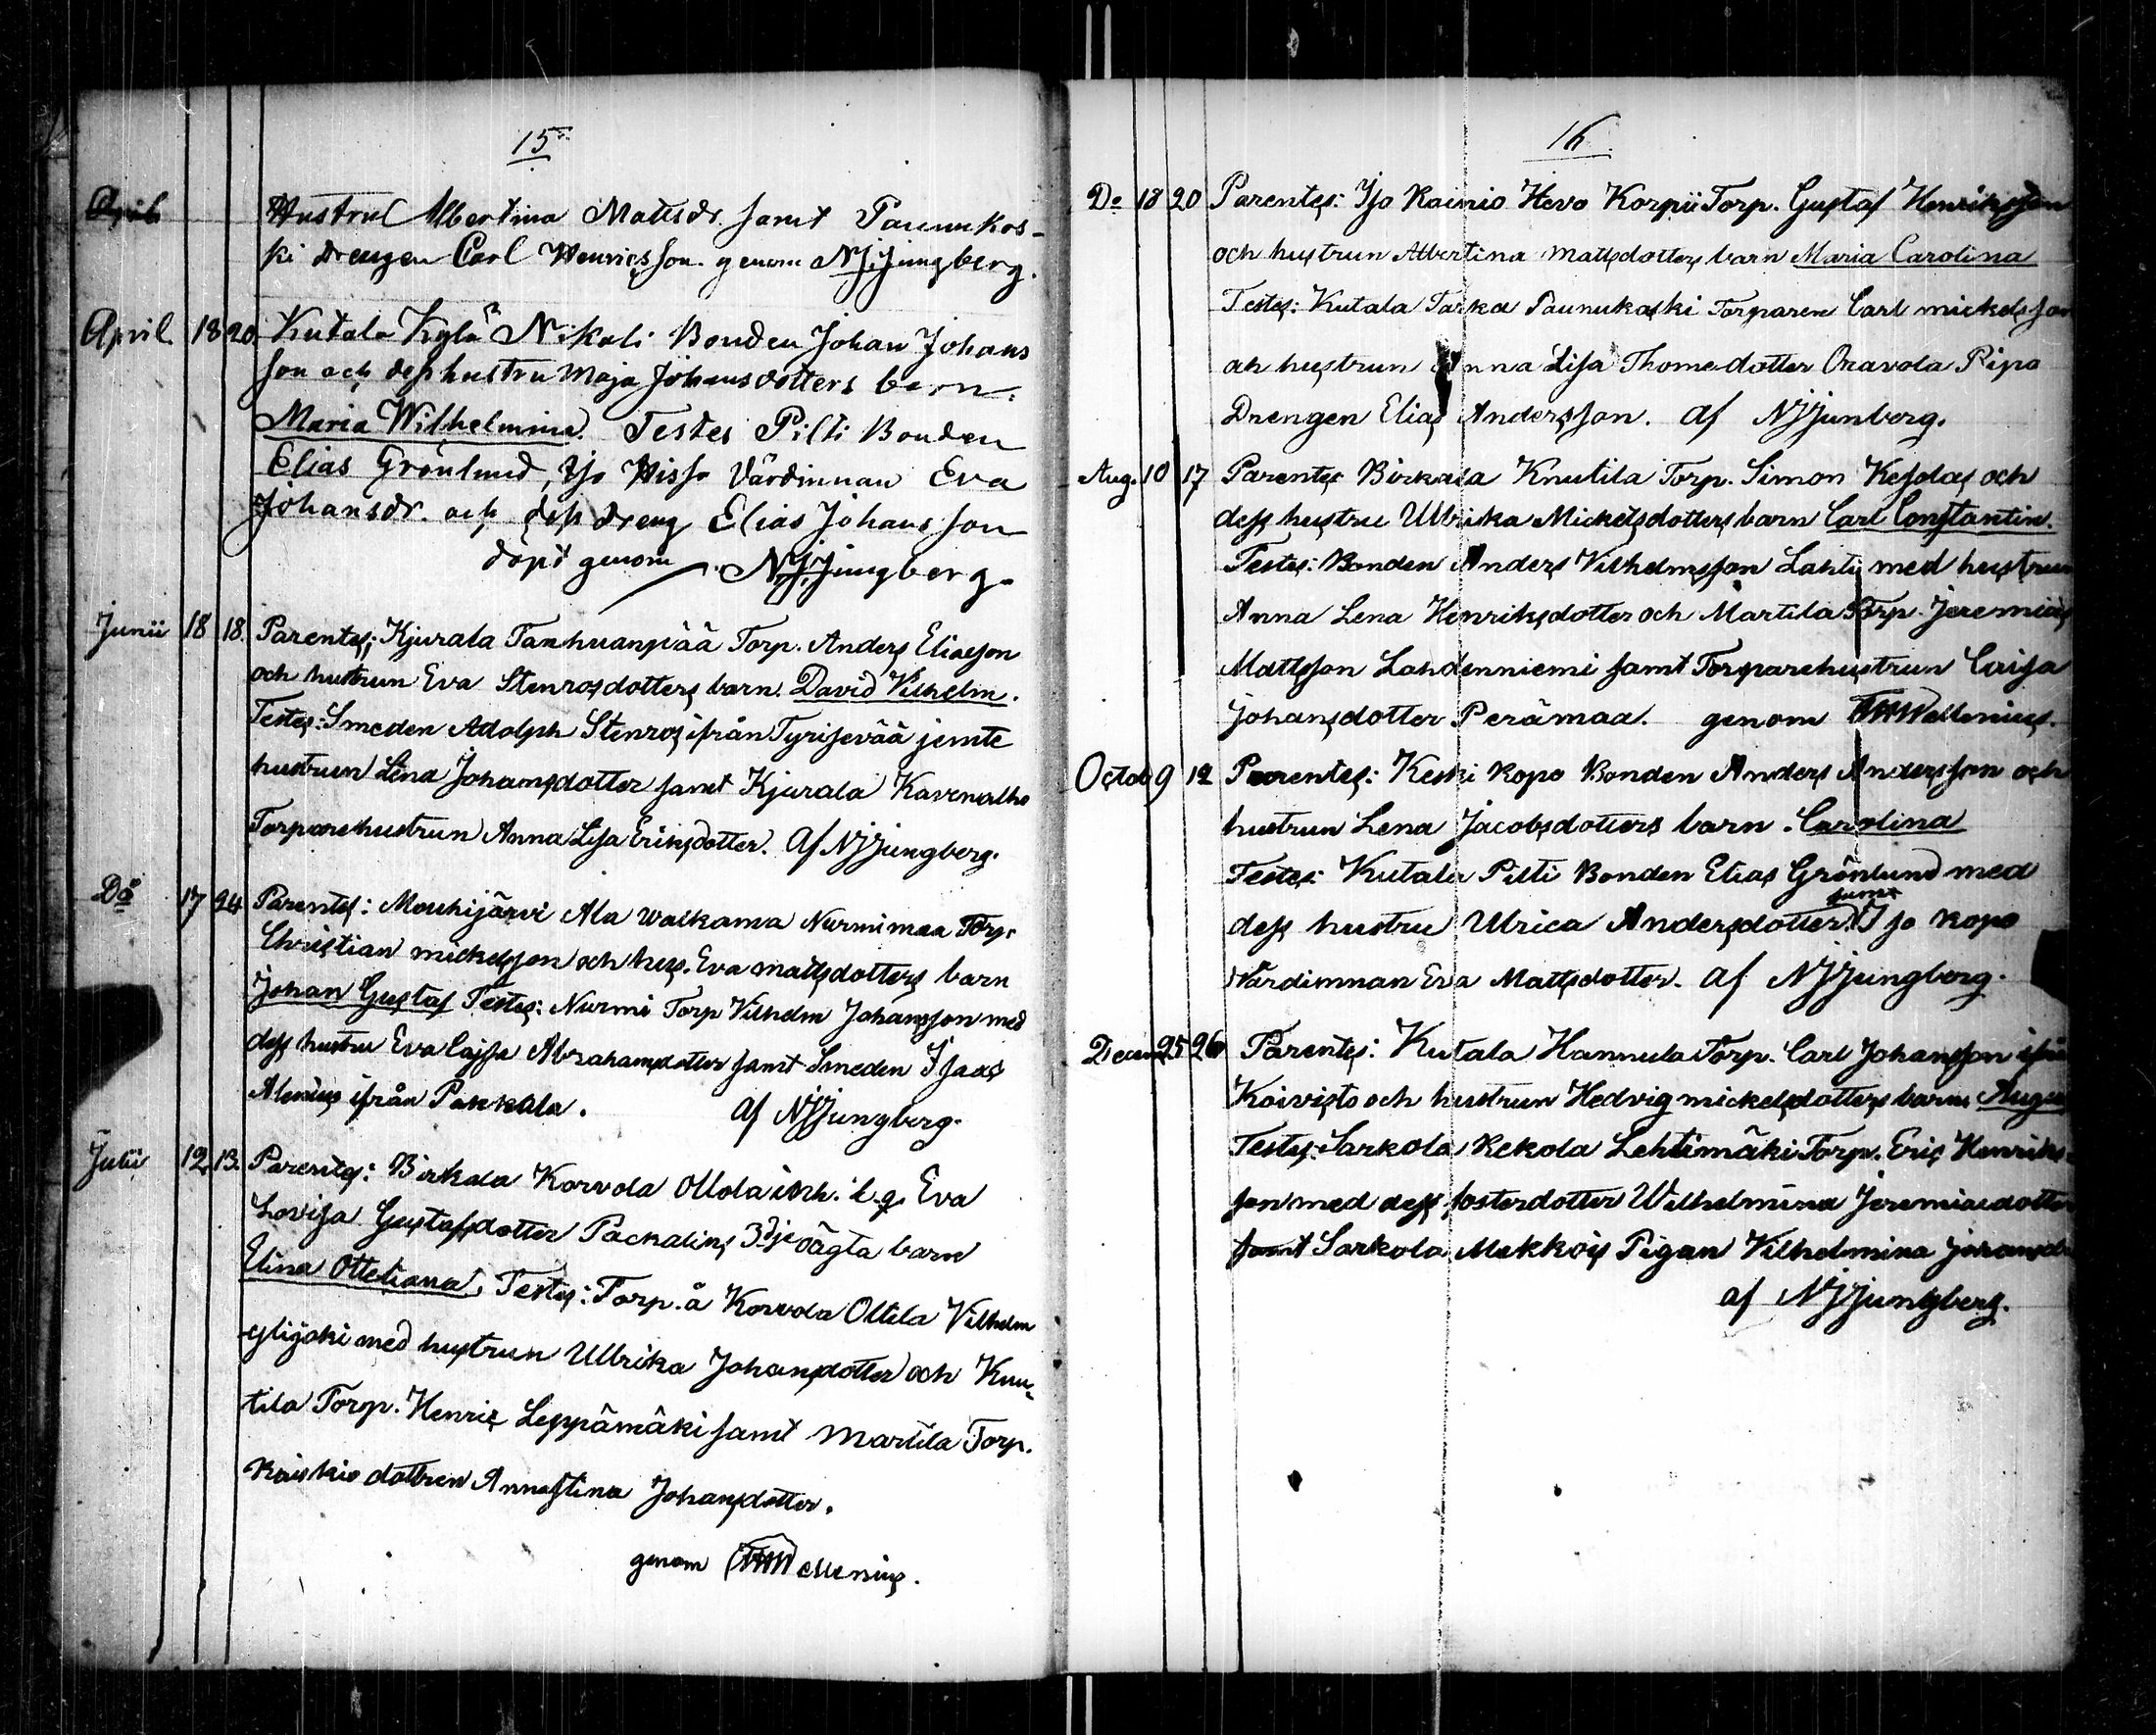 15
April
Hustru Albertina Mattsdr. samt Paunukos-
ki Drengen Carl Henricsson. genom NJjungberg.
April 18 20. Kutala Kylä Nikali Bonden Johan Johans
son och dess hustru Maja Johansdotters barn.
Maria Wilhelmina. Testes Pilti Bonden
Elias Grönlund, Iso Hisso Värdinnan Eva
Johansdr. och dess dreng Elias Johansson
döpt genom NJjungberg.
Junii 18 18. Parentes; Kjurala Tanhuanpää Torp. Anders Eliasson
och hustrun Eva Stenrosdotters barn. David Vilhelm.
Testes: Smeden Adolph Stenros ifrån Tyrisevää jemte
hustrun Lena Johansdotter samt Kjurala
Torparehustrun Anna Lisa Eriksdotter. Af NJjungberg.
Do 17 24 Parentes: Mouhijärvi Ala Walkama Nurmimaa Torp.
Christian mickelsson och hus. Eva mattsdotters barn
Johan Gustaf Testes: Nurmi Torp Vilhelm Johansson med
dess hustru Eva Cajsa Abrahamsdotter samt Smeden Isaac
Alenius ifrån Pakkala. af NJjungberg.
Julii 12 13. Parentes: Birkala Korvola Ollola inh. q. Eva
Lovisa Gustafsdotter Packalins 3dje oägta barn
Elina Ottetiana, Testes: Torp. å Korvola Ollila Vilhelm
ylijoki med hustrun Ullrika Johansdotter och Knu-
tila Torp. Henric Leppämäki samt Martila Torp.
Koiskio dottren Annastina Johansdotter.
genom Wellenius.
16
Do 18 20 Parentes: Iso Rainio Hevo Korpii Torp. Gustaf Henriksson
och hustrun Albertina Mattsdotters barn Maria Carolina
Testes: Kutala Tarka Paunukoski Torparen Carl mickelsson
och hustrun Anna Lisa Thomedotter Oravola Ripo
Drengen Elias Andersson. af NJjunberg.
Aug. 10 17 Parentes Birkala Knutila Torp. Simon Keplas och
dess hustru Ullrika Mickelsdotters barn Carl Constantin.
Testes: Bonden Anders Vilhelmsson Lahti med hustrun
Anna Lena Henriksdotter och Martila Torp. Jeremias
Mattsson Lahdenniemi samt Torparehustrun Caisa
Johansdotter Perämaa. genom Wellenius.
Octob 9 12 Parentes: Keski Kopo Bonden Anders Andersson och
hustrun Lena Jacobsdotters barn. Carolina
Testes: Kutala Pilti Bonden Elias Grönlund med
dess hustru Ulrica Andersdotter. samt Iso kopo
Värdinnan Eva Mattsdotter. af NJjungberg.
Decem 25 26 Parentes: Kutala Hannula Torp. Carl Johansson ifrån
Koivisto och hustrun Hedvig mickelsdotters barn
Testes: Sarkola Kekola Lehtimäki Torp. Eric Henriks-
son med dess fosterdotter Wilhelmina Jeremiaedotter
samt Sarkola Mekkois Pigan Vilhelmina Johansdr
af NJjungberg.